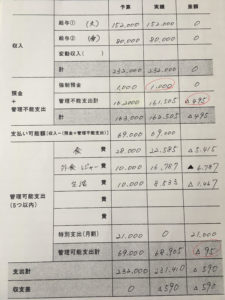 予算 実績 差額
収入 給与① (夫) 152,000 152,000 0
給与② (妻) 80,000 80,000 0
変動収入 ( )
計 232,000 232,000 0
預金+管理不能支出 強制預金 1,000 1,000 0
管理不能支出計 162,000 161,505 △495
計 163,000 162,505 △495
支払い可能額 (収入−(預金+管理不能支出) 69,000 69,000
管理可能支出 (5つ以内) 食 費 28,000 22,585 △5,415
外食 レジャー 費 10,000 16,787 ▲6,787
生活 費 10,000 8,533 △1,467
費
費
特別支出(月割) 21,000 0 21,000
管理可能支出計 69,000 68,905 △95
支出計 232,000 231,410 △590
収支差 0 △590 △590